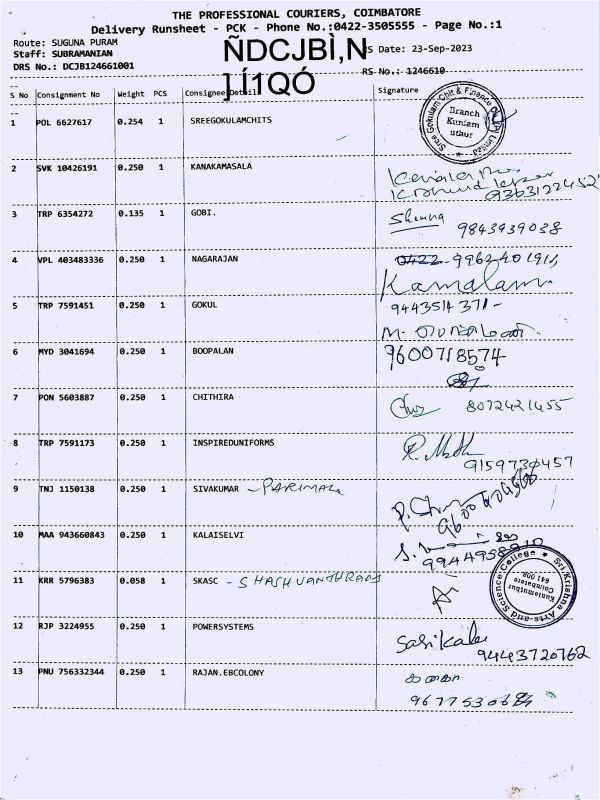 THE PROFESSIONAL COURIERS, COIMBATORE
Delivery Runsheet - PCK - Phone No.:0422-3505555 - Page No.:1
Route: SUGUNA PURAM
ÑDCJBÌ,N
RS Date: 23-Sep-2023
Staff: SUBRAMANIAN
DRS No.: DCJB124661001
]Í1QÓ
RS No.: 1246610
S No Consignment No Weight PCS Consignee Detail Signature
1 POL 6627617 0.254 1 SREEGOKULAMCHITS
Sree Gokulam Chit & Finance Limited
Branch
Kuniam
uthur
2 SVK 10426191 0.250 1 KANAKAMASALA
3 TRP 6354272 0.135 1 GOBI.
9843939038
4 VPL 403483336 0.250 1 NAGARAJAN
0422-
Kamalam
5 TRP 7591451 0.250 1 GOKUL
9443514371-
6 MYD 3041694 0.250 1 BOOPALAN
9600718574
7 PON 5603887 0.250 1 CHITHIRA
8072421455
8 TRP 7591173 0.250 1 INSPIREDUNIFORMS
9159730457
9 TNJ 1150138 0.250 1 SIVAKUMAR
10 MAA 943660843 0.250 1 KALAISELVI
11 KRR 5796383 0.058 1 SKASC - SHASHVANTHRAOS
Sri Krishna Arts and Science College
Kuniamuthur
Coimbatore
641 008
12 RJP 3224955 0.250 1 POWERSYSTEMS
Sasikala
9443720762
13 PNU 756332344 0.250 1 RAJAN.EBCOLONY
கனகா